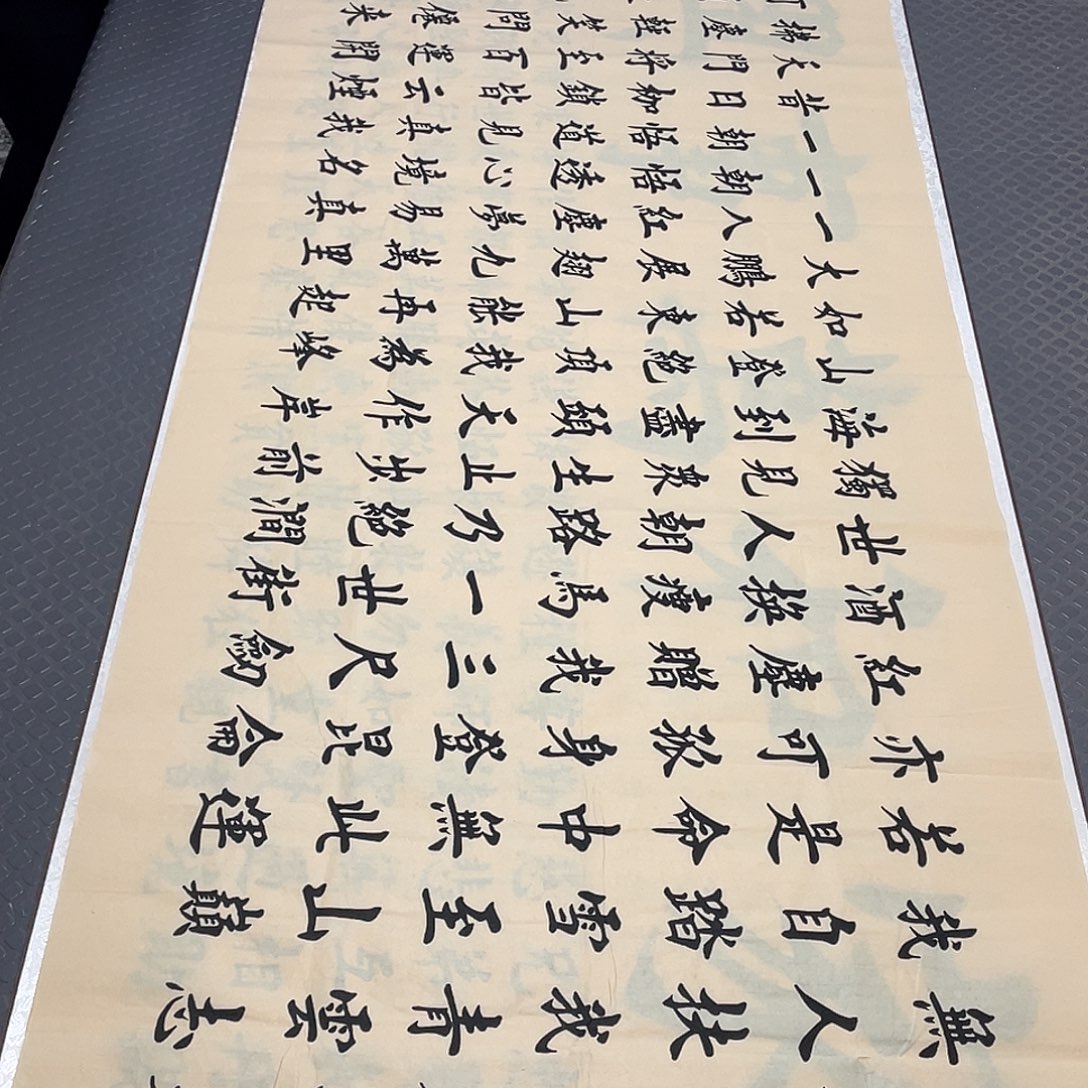 無人扶我青雲志
我自踏雪至山巔
若是命中無此運
亦可孤身登昆侖
紅塵贈我三尺劍
酒換瘦馬一世銜
世人朝路乃絕澗
獨見眾生止步前
海到盡頭天作岸
山登絕頂我為峰
如若東山能再起
大鵬展翅九萬里
一入紅塵夢易真
一朝悟透心境名
一朝悟道見真我
昔日枷鎖皆云煙
天門將至百運開
拂塵輕笑問僊來